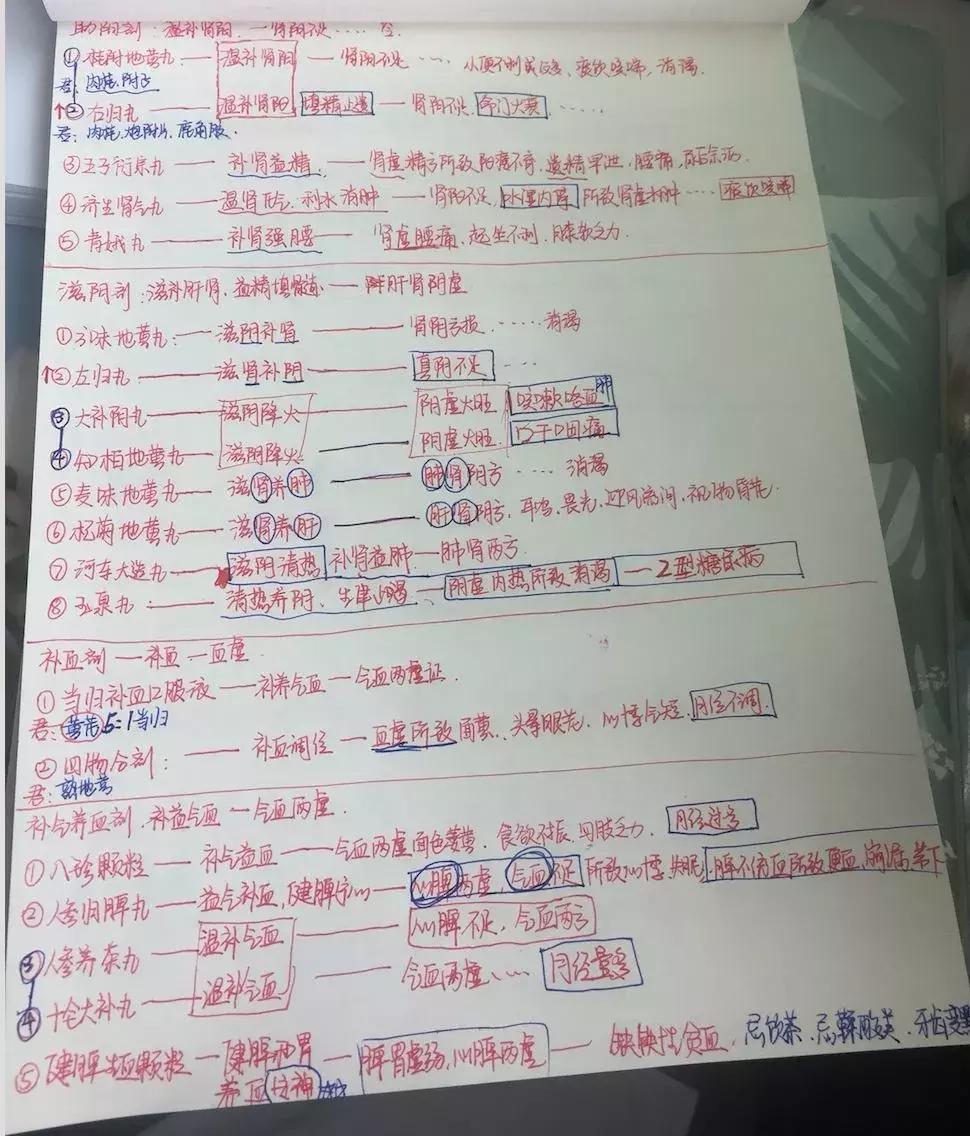 助阳剂：温补肾阳.—肾阳不足……
①桂附地黄丸——温补肾阳——肾阳不足……小便不利或反多、痰饮咳喘、消渴.
君：肉桂.附子
↑②右归丸——温补肾阳 填精止遗——肾阳不足.命门火衰……
君：肉桂.炮附片.鹿角胶.
③五子衍宗丸——补肾益精.——肾虚精亏所致阳痿不育.遗精早泄.腰痛.尿后余沥.
④济生肾气丸——温肾化气.利水消肿——肾阳不足.水湿内停所致肾虚水肿……痰饮咳喘
⑤青娥丸——补肾强腰——肾虚腰痛.起坐不利.膝软乏力.
滋阴剂：滋补肝肾、益精填髓——肝肾阴虚
①六味地黄丸：——滋阴补肾——肾阴亏损……消渴
↑②左归丸——滋肾补阴——真阴不足…
③大补阴丸——滋阴降火——阴虚火旺 咳嗽咯血 肺
④知柏地黄丸——滋阴降火——阴虚火旺. 口干口咽痛
⑤麦味地黄丸——滋肾养肺——肺肾阴亏……消渴
⑥杞菊地黄丸——滋肾养肝——肝肾阴亏.耳鸣.畏光.迎风流泪.视物昏花.
⑦河车大造丸——滋阴清热 补肾益肺—肺肾两亏.
⑧玉泉丸：——清热养阴、生津止渴——阴虚内热所致消渴—2型糖尿病
补血剂—补血—血虚.
①当归补血口服液—补养气血—气血两虚证.
君：黄芪5:1当归
②四物合剂：——补血调经—血虚所致面黄、头晕眼花、心悸气短.月经不调.
君：熟地黄
补气养血剂.补益气血—气血两虚.
①八珍颗粒—补气益血—气血两虚面色萎黄.食欲不振.四肢乏力.月经过多
②人参归脾丸—益气补血.健脾宁心—心脾两虚.气血不足所致心悸.失眠.脾不统血所致便血.崩漏.带下
③人参养荣丸—温补气血——心脾不足.气血两亏
④十全大补丸—温补气血——气血两虚……月经量多
⑤健脾生血颗粒—健脾和胃—脾胃虚弱.心脾两虚—缺铁性贫血.忌饮茶.忌鞣酸类.牙齿变黑
养血安神